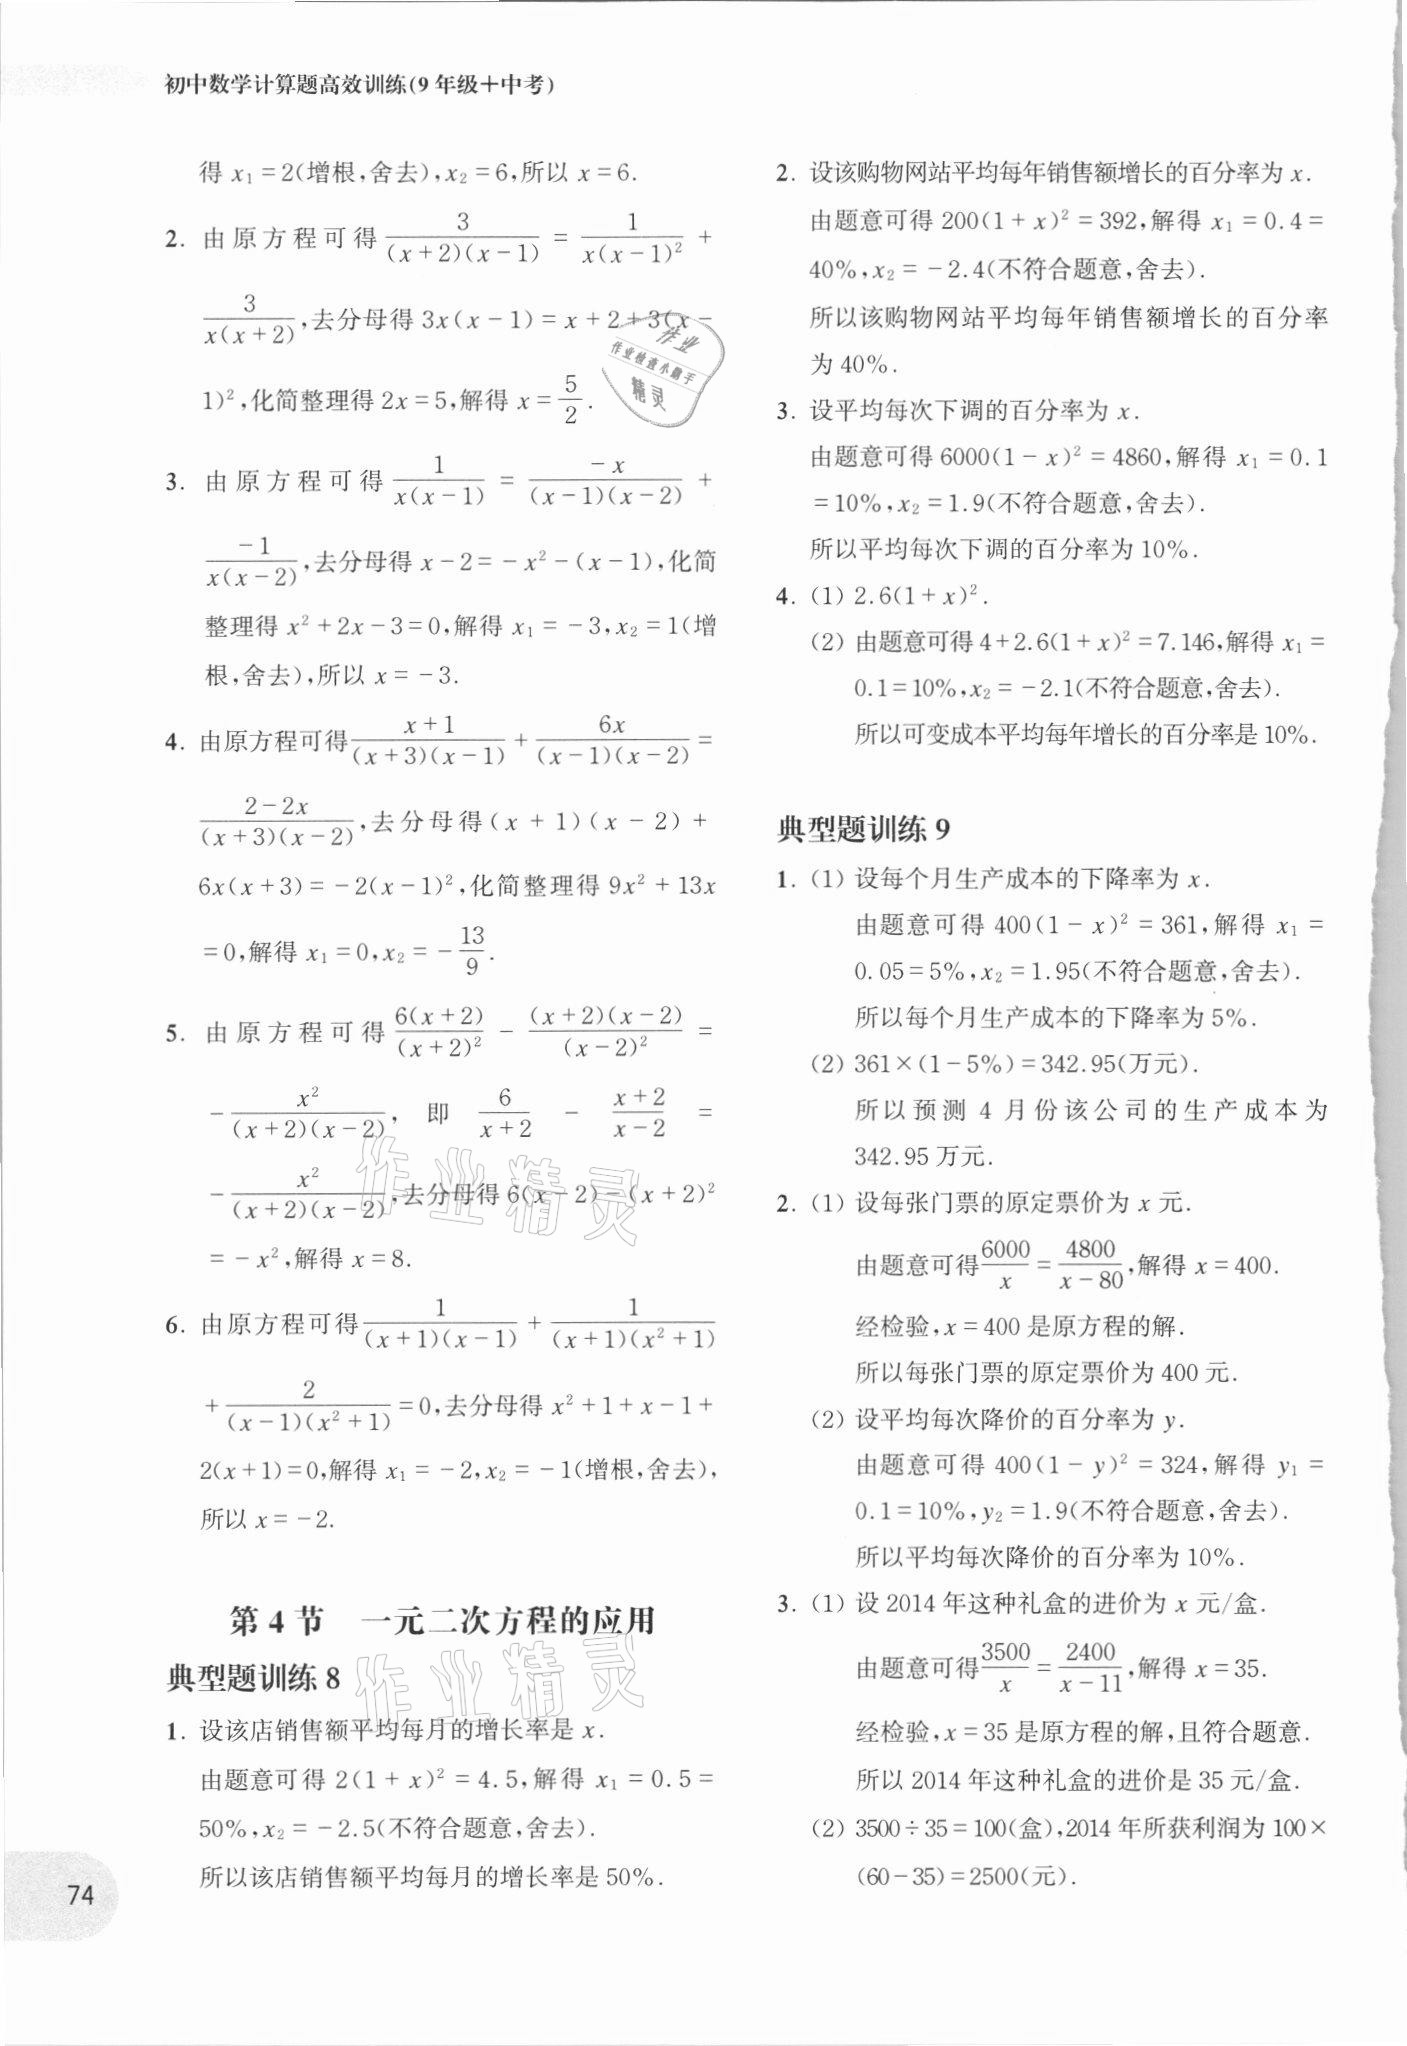 初中数学计算题高效训练(9年级+中考)
得 x₁=2(增根,舍去),x₂=6,所以 x=6.
2. 由原方程可得 3/((x+2)(x-1)) = 1/(x(x-1)²) +
3/(x(x+2)),去分母得 3x(x-1)=x+2+3(x-
1)²,化简整理得 2x=5,解得 x=5/2.
3. 由原方程可得 1/(x(x-1)) = -x/((x-1)(x-2)) +
-1/(x(x-2)),去分母得 x-2=-x²-(x-1),化简
整理得 x²+2x-3=0,解得 x₁=-3,x₂=1(增
根,舍去),所以 x=-3.
4. 由原方程可得 (x+1)/((x+3)(x-1)) + 6x/((x-1)(x-2)) =
(2-2x)/((x+3)(x-2)),去分母得(x+1)(x-2)+
6x(x+3)=-2(x-1)²,化简整理得 9x²+13x
=0,解得 x₁=0,x₂=-13/9.
5. 由原方程可得 6(x+2)/(x+2)² - (x+2)(x-2)/(x-2)² =
-x²/((x+2)(x-2)),即 6/(x+2) - (x+2)/(x-2) =
-x²/((x+2)(x-2)),去分母得 6(x-2)-(x+2)²
=-x²,解得 x=8.
6. 由原方程可得 1/((x+1)(x-1)) + 1/((x+1)(x²+1))
+2/((x-1)(x²+1))=0,去分母得 x²+1+x-1+
2(x+1)=0,解得 x₁=-2,x₂=-1(增根,舍去),
所以 x=-2.
第4节 一元二次方程的应用
典型题训练8
1. 设该店销售额平均每月的增长率是 x.
由题意可得 2(1+x)²=4.5,解得 x₁=0.5=
50%,x₂=-2.5(不符合题意,舍去).
所以该店销售额平均每月的增长率是50%.
74
2. 设该购物网站平均每年销售额增长的百分率为 x.
由题意可得 200(1+x)²=392,解得 x₁=0.4=
40%,x₂=-2.4(不符合题意,舍去).
所以该购物网站平均每年销售额增长的百分率
为40%.
3. 设平均每次下调的百分率为 x.
由题意可得 6000(1-x)²=4860,解得 x₁=0.1
=10%,x₂=1.9(不符合题意,舍去).
所以平均每次下调的百分率为10%.
4. (1) 2.6(1+x)².
(2) 由题意可得 4+2.6(1+x)²=7.146,解得 x₁=
0.1=10%,x₂=-2.1(不符合题意,舍去).
所以可变成本平均每年增长的百分率是10%.
典型题训练9
1. (1) 设每个月生产成本的下降率为 x.
由题意可得 400(1-x)²=361,解得 x₁=
0.05=5%,x₂=1.95(不符合题意,舍去).
所以每个月生产成本的下降率为5%.
(2) 361×(1-5%)=342.95(万元).
所以预测4月份该公司的生产成本为
342.95万元.
2. (1) 设每张门票的原定票价为 x 元.
由题意可得 6000/x = 4800/(x-80),解得 x=400.
经检验,x=400是原方程的解.
所以每张门票的原定票价为400元.
(2) 设平均每次降价的百分率为 y.
由题意可得 400(1-y)²=324,解得 y₁=
0.1=10%,y₂=1.9(不符合题意,舍去).
所以平均每次降价的百分率为10%.
3. (1) 设2014年这种礼盒的进价为 x 元/盒.
由题意可得 3500/x = 2400/(x-11),解得 x=35.
经检验,x=35是原方程的解,且符合题意.
所以2014年这种礼盒的进价是35元/盒.
(2) 3500÷35=100(盒),2014年所获利润为100×
(60-35)=2500(元).
作业
作业检查小助手
精灵
作业精灵
作业精灵